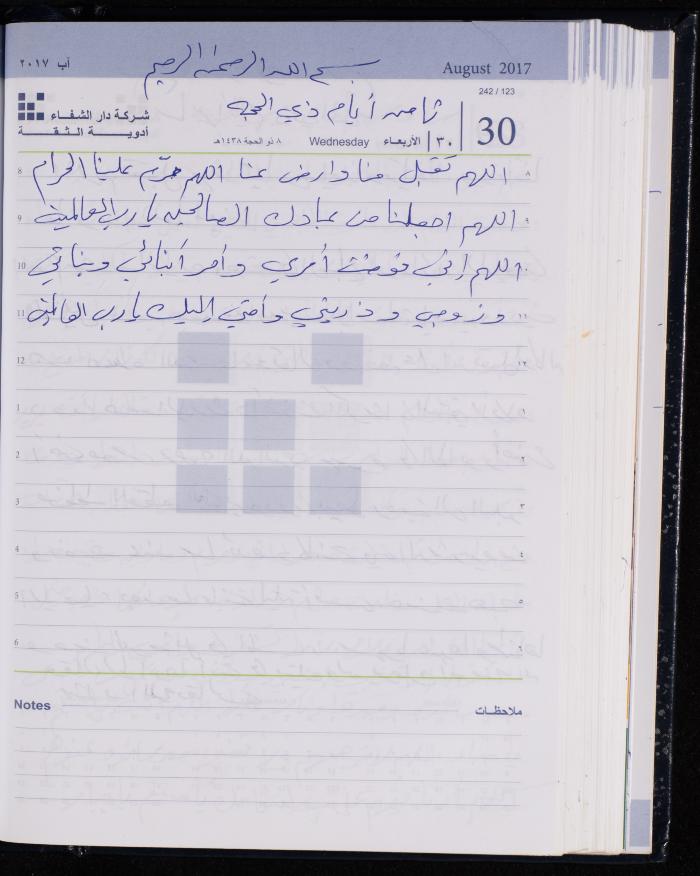 آب ٢٠١٧
بسم الله الرحمن الرحيم
August 2017
242 / 123
ثامن أيام ذي الحجة
شركة دار الشفاء
أدوية الثقة
٨ ذو الحجة ١٤٣٨هـ
Wednesday
الأربعاء
٣٠
30
8 اللهم تقبل منا وارض عنا اللهم حرّم علينا الحرام ٨
9 اللهم اجعلنا من عبادك الصالحين يا رب العالمين ٩
10 اللهم إني فوضت أمري وأمر أبنائي وبناتي ١٠
11 وزوجي وذريتي وأمتي إليك يا رب العالمين ١١
12 ١٢
1 ١
2 ٢
3 ٣
4 ٤
5 ٥
6 ٦
Notes ملاحظات